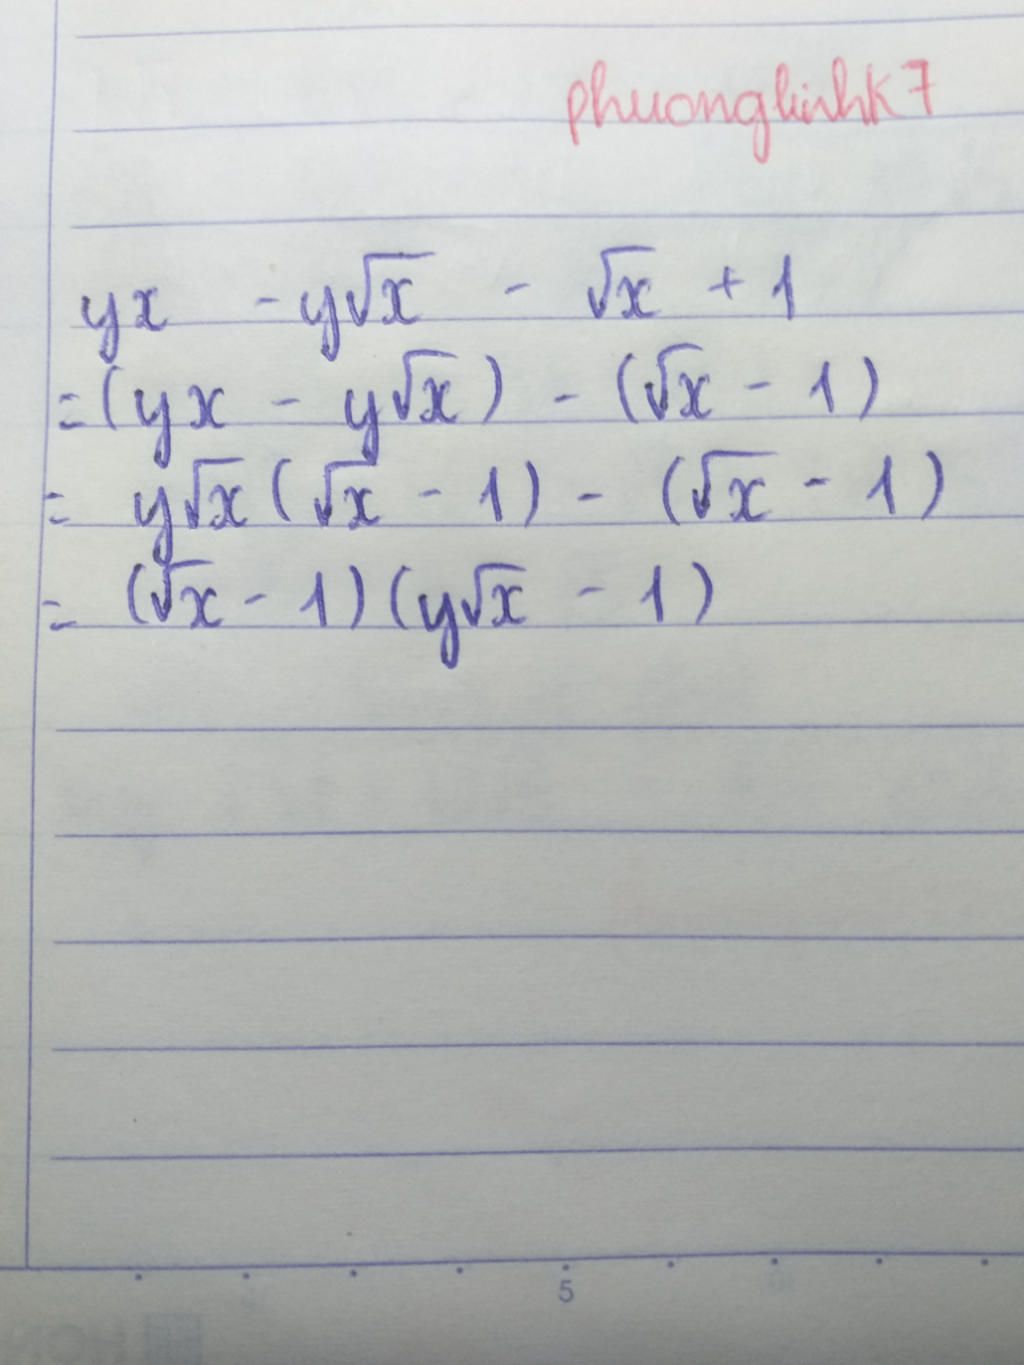 phuonglinhk7
yx - y√x - √x + 1
= (yx - y√x) - (√x - 1)
= y√x (√x - 1) - (√x - 1)
= (√x - 1) (y√x - 1)
5